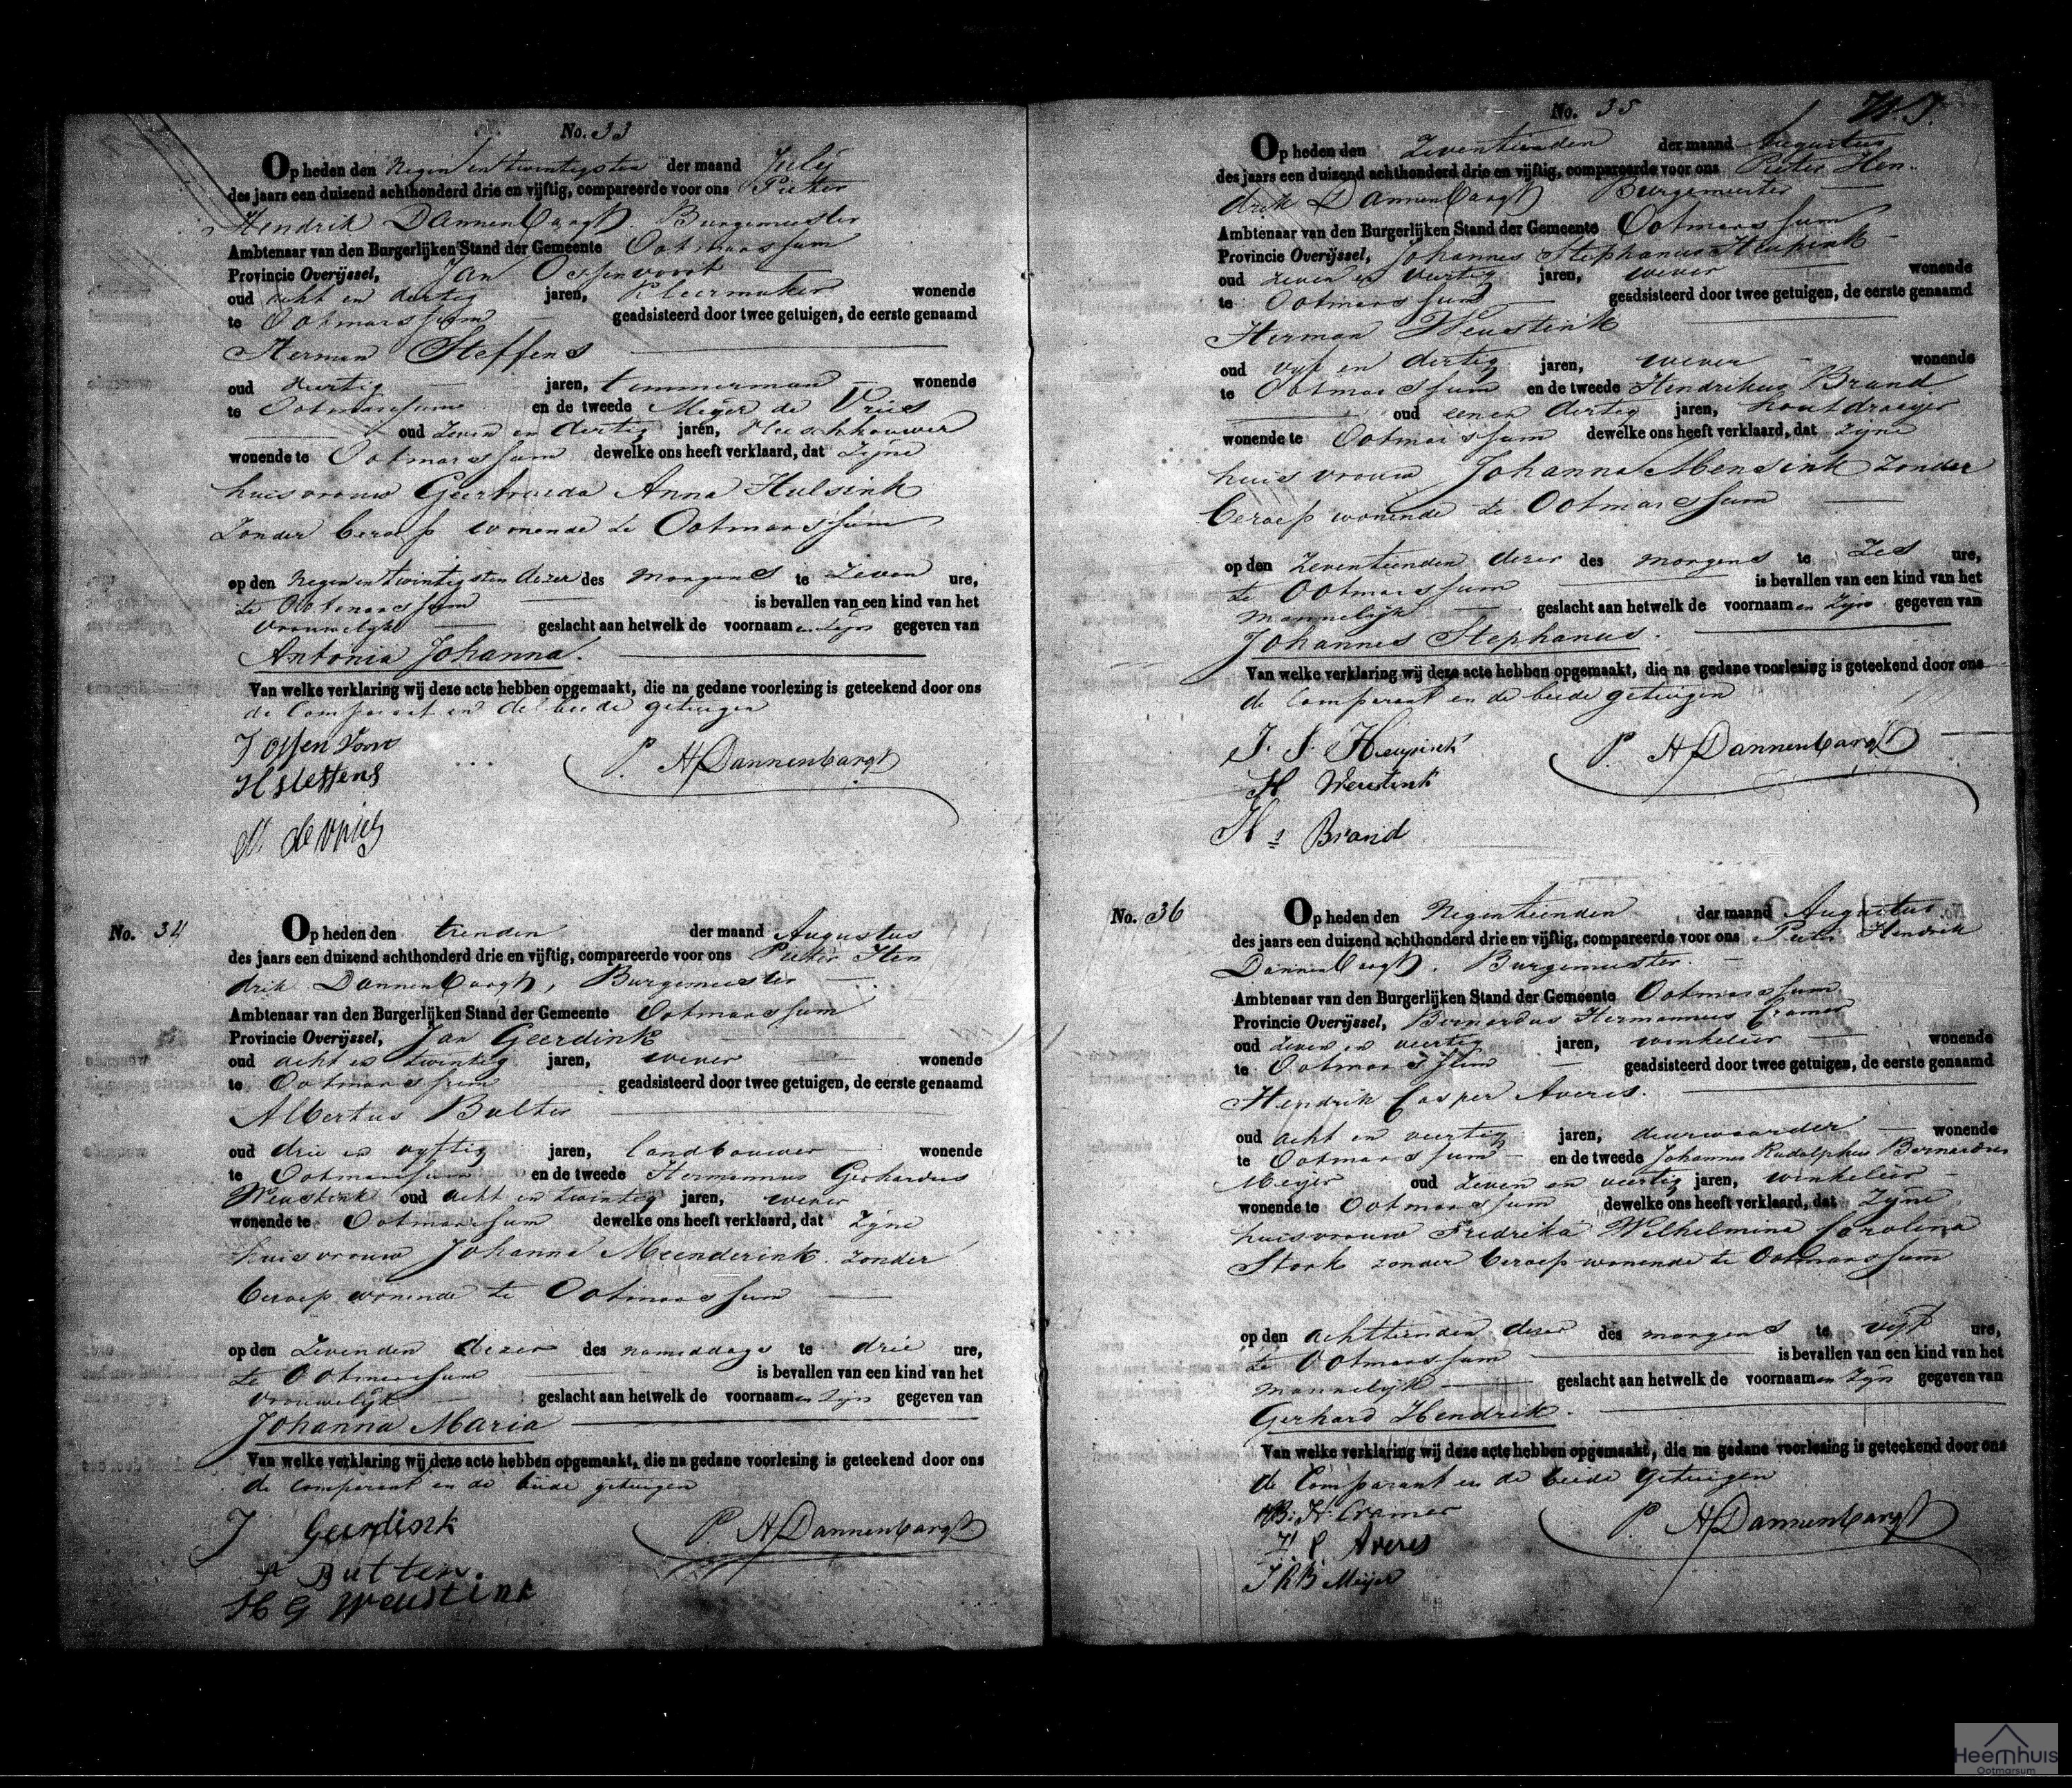 No. 33
Op heden den Negen en twintigsten der maand July
des jaars een duizend achthonderd drie en vijftig, compareerde voor ons Pieter
Hendrik Dannenbargh, Burgemeester
Ambtenaar van den Burgerlijken Stand der Gemeente Ootmarssum
Provincie Overijssel, Jan Ossenvoort
oud acht en dertig jaren, Kleermaker wonende
te Ootmarssum geadsisteerd door twee getuigen, de eerste genaamd
Herman Steffens
oud veertig jaren, timmerman wonende
te Ootmarssum en de tweede Meijer de Vries
oud Zeven en dertig jaren, vleeschhouwer
wonende te Ootmarssum dewelke ons heeft verklaard, dat Zijne
huisvrouw Geertruida Anna Hulsink
Zonder beroep wonende te Ootmarssum
op den Negenentwintigsten dezer des morgens te Zeven ure,
te Ootmarssum is bevallen van een kind van het
vrouwelijk geslacht aan hetwelk de voornaamen zijn gegeven van
Antonia Johanna.
Van welke verklaring wij deze acte hebben opgemaakt, die na gedane voorlezing is geteekend door ons
de Comparant en de beide getuigen
J Ossenvoort
P. H Dannenbargh
H Steffens
M. de Vries
No. 34
Op heden den tienden der maand Augustus
des jaars een duizend achthonderd drie en vijftig, compareerde voor ons Pieter Hen
drik Dannenbargh, Burgemeester
Ambtenaar van den Burgerlijken Stand der Gemeente Ootmarssum
Provincie Overijssel, Jan Geerdink
oud acht en twintig jaren, wever wonende
te Ootmarssum geadsisteerd door twee getuigen, de eerste genaamd
Albertus Bulter
oud drie en vyftig jaren, landbouwer wonende
te Ootmarssum en de tweede Hermannus Gerhardus
Weustink oud acht en twintig jaren, wever
wonende te Ootmarssum dewelke ons heeft verklaard, dat Zijne
huisvrouw Johanna Meenderink zonder
beroep wonende te Ootmarssum
op den Zevenden dezer des namiddags te drie ure,
te Ootmarssum is bevallen van een kind van het
vrouwelijk geslacht aan hetwelk de voornaamen zijn gegeven van
Johanna Maria
Van welke verklaring wij deze acte hebben opgemaakt, die na gedane voorlezing is geteekend door ons
de comparant en de beide getuigen
J Geerdink
P. H Dannenbargh
A Bulter.
H G Weustink
No. 35
Op heden den Zeventienden der maand Augustus
des jaars een duizend achthonderd drie en vijftig, compareerde voor ons Pieter Hen-
drik Dannenbargh Burgemeester
Ambtenaar van den Burgerlijken Stand der Gemeente Ootmarssum
Provincie Overijssel, Johannes Stephanus Heupink
oud zeven en veertig jaren, wever wonende
te Ootmarssum geadsisteerd door twee getuigen, de eerste genaamd
Herman Weustink
oud vyf en dertig jaren, wever wonende
te Ootmarssum en de tweede Hendrikus Brand
oud eenen dertig jaren, houtdraaijer
wonende te Ootmarssum dewelke ons heeft verklaard, dat zijne
huisvrouw Johanna Mensink zonder
beroep wonende te Ootmarssum
op den Zeventienden dezer des morgens te Zes ure,
te Ootmarssum is bevallen van een kind van het
mannelijk geslacht aan hetwelk de voornaamen zijn gegeven van
Johannes Stephanus.
Van welke verklaring wij deze acte hebben opgemaakt, die na gedane voorlezing is geteekend door ons
de comparant en de beide getuigen
J. S. Heupink
P. H Dannenbargh
H Weustink
Hs Brand
No. 36
Op heden den Negentienden der maand Augustus
des jaars een duizend achthonderd drie en vijftig, compareerde voor ons Pieter Hendrik
Dannenbargh. Burgemeester.
Ambtenaar van den Burgerlijken Stand der Gemeente Ootmarssum
Provincie Overijssel, Bernardus Hermannus Cramer
oud zeven en veertig jaren, winkelier wonende
te Ootmarssum geadsisteerd door twee getuigen, de eerste genaamd
Hendrik Casper Averes.
oud acht en veertig jaren, deurwaarder wonende
te Ootmarssum en de tweede Johannes Rudolphus Bernardus
Meijer oud zeven en veertig jaren, winkelier
wonende te Ootmarssum dewelke ons heeft verklaard, dat Zijne
huisvrouw Fredrika Wilhelmina Carolina
Stork zonder beroep wonende te Ootmarssum
op den achttienden dezer des morgens te vijf ure,
te Ootmarssum is bevallen van een kind van het
mannelijk geslacht aan hetwelk de voornaamen zijn gegeven van
Gerhard Hendrik.
Van welke verklaring wij deze acte hebben opgemaakt, die na gedane voorlezing is geteekend door ons
de Comparant en de beide getuigen
B. H. Cramer
P. H Dannenbargh
H. C. Averes
J R B Meijer
Heemhuis
Ootmarsum